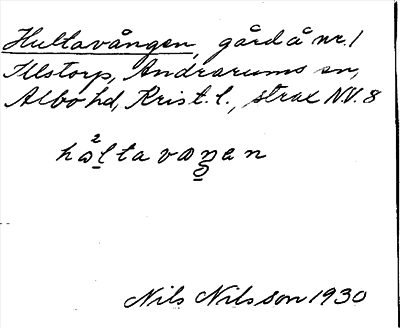 Hultavången, gård å nr. 1
Illstorp, Andrarums sn,
Albo hd, Krist. l., strax NV. 8
hå²ltavaŋen
Nils Nilsson 1930